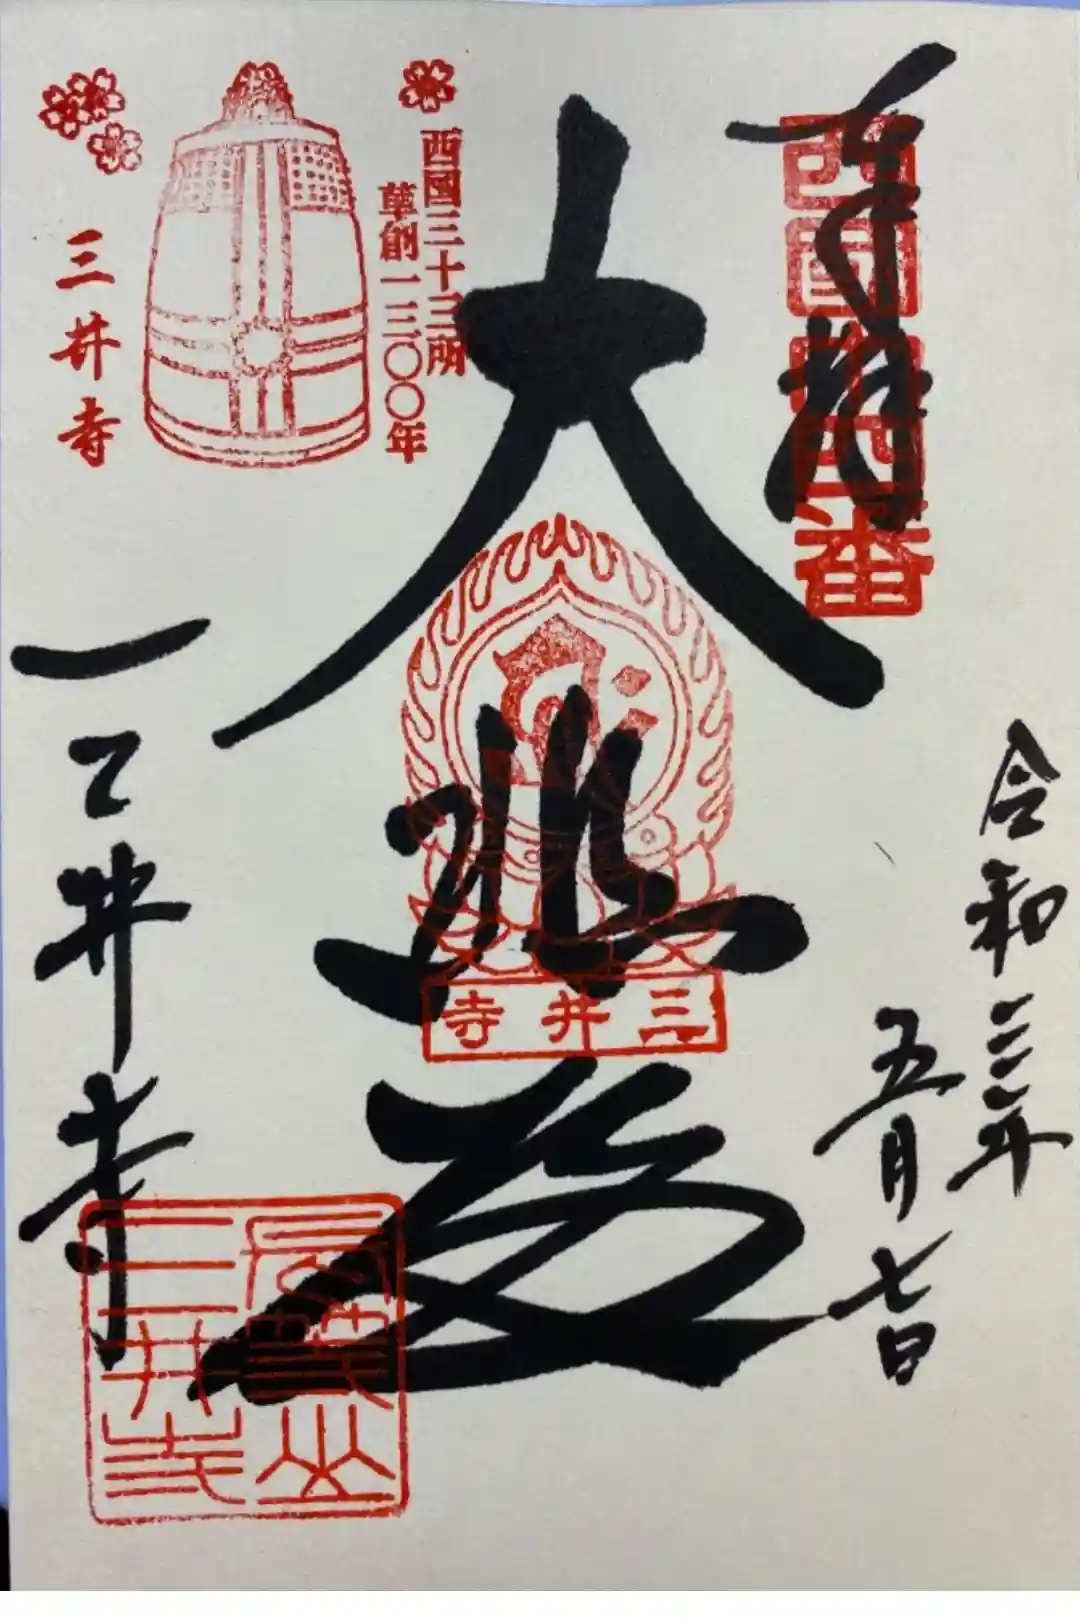 奉拝
西國拾四番
令和三年
五月七日
大悲殿
西國三十三所
草創一三〇〇年
三井寺
三井寺
三井寺
長等山
三井寺